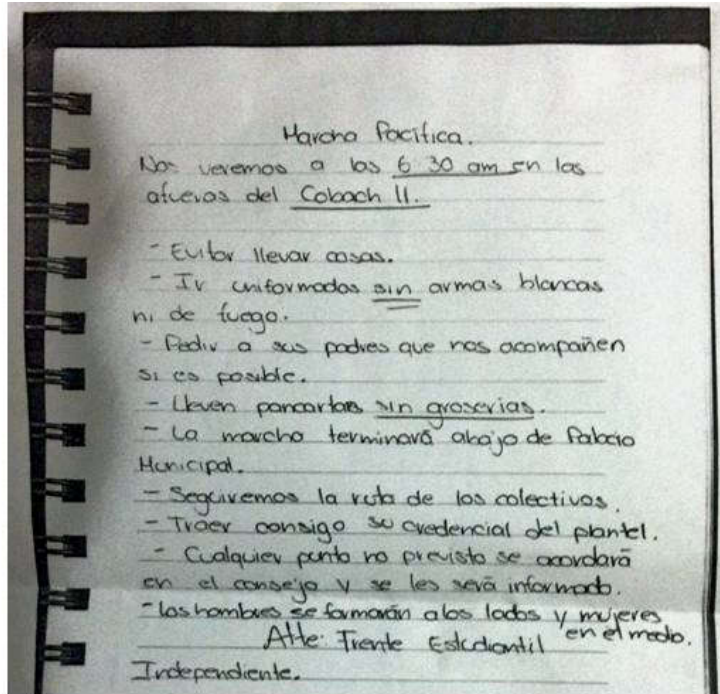 Marcha Pacífica.
Nos veremos a las 6 30 am en las
afueras del Cobach 11.
- Evitar llevar cosas.
- Ir uniformados sin armas blancas
ni de fuego.
- Pedir a sus padres que nos acompañen
si es posible.
- Lleven pancartas sin groserias.
- La marcha terminará abajo de Palacio
Municipal.
- Seguiremos la ruta de los colectivos.
- Traer consigo su credencial del plantel.
- Cualquier punto no previsto se acordará
en el consejo y se les será informado.
- los hombres se formarán a los lados y mujeres
en el medio.
Atte: Frente Estudiantil
Independiente.